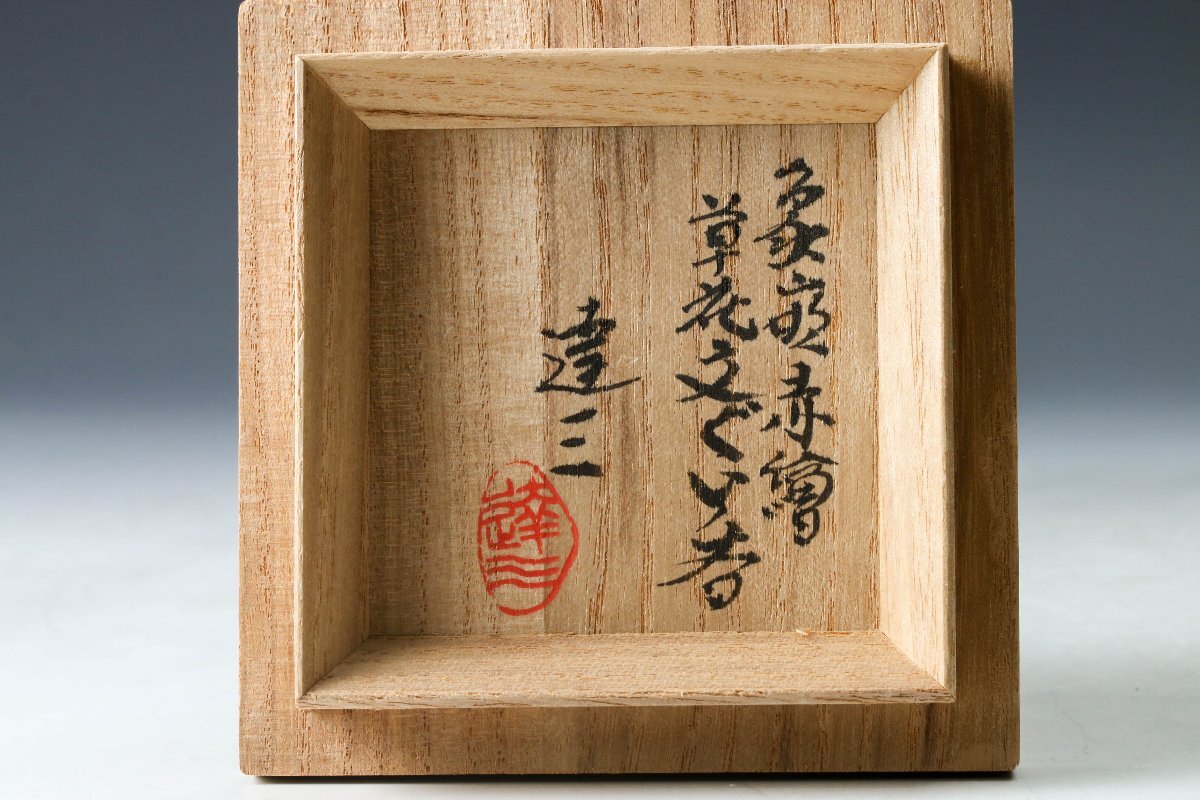 象嵌赤繪
草花文ぐい呑
達三
達三